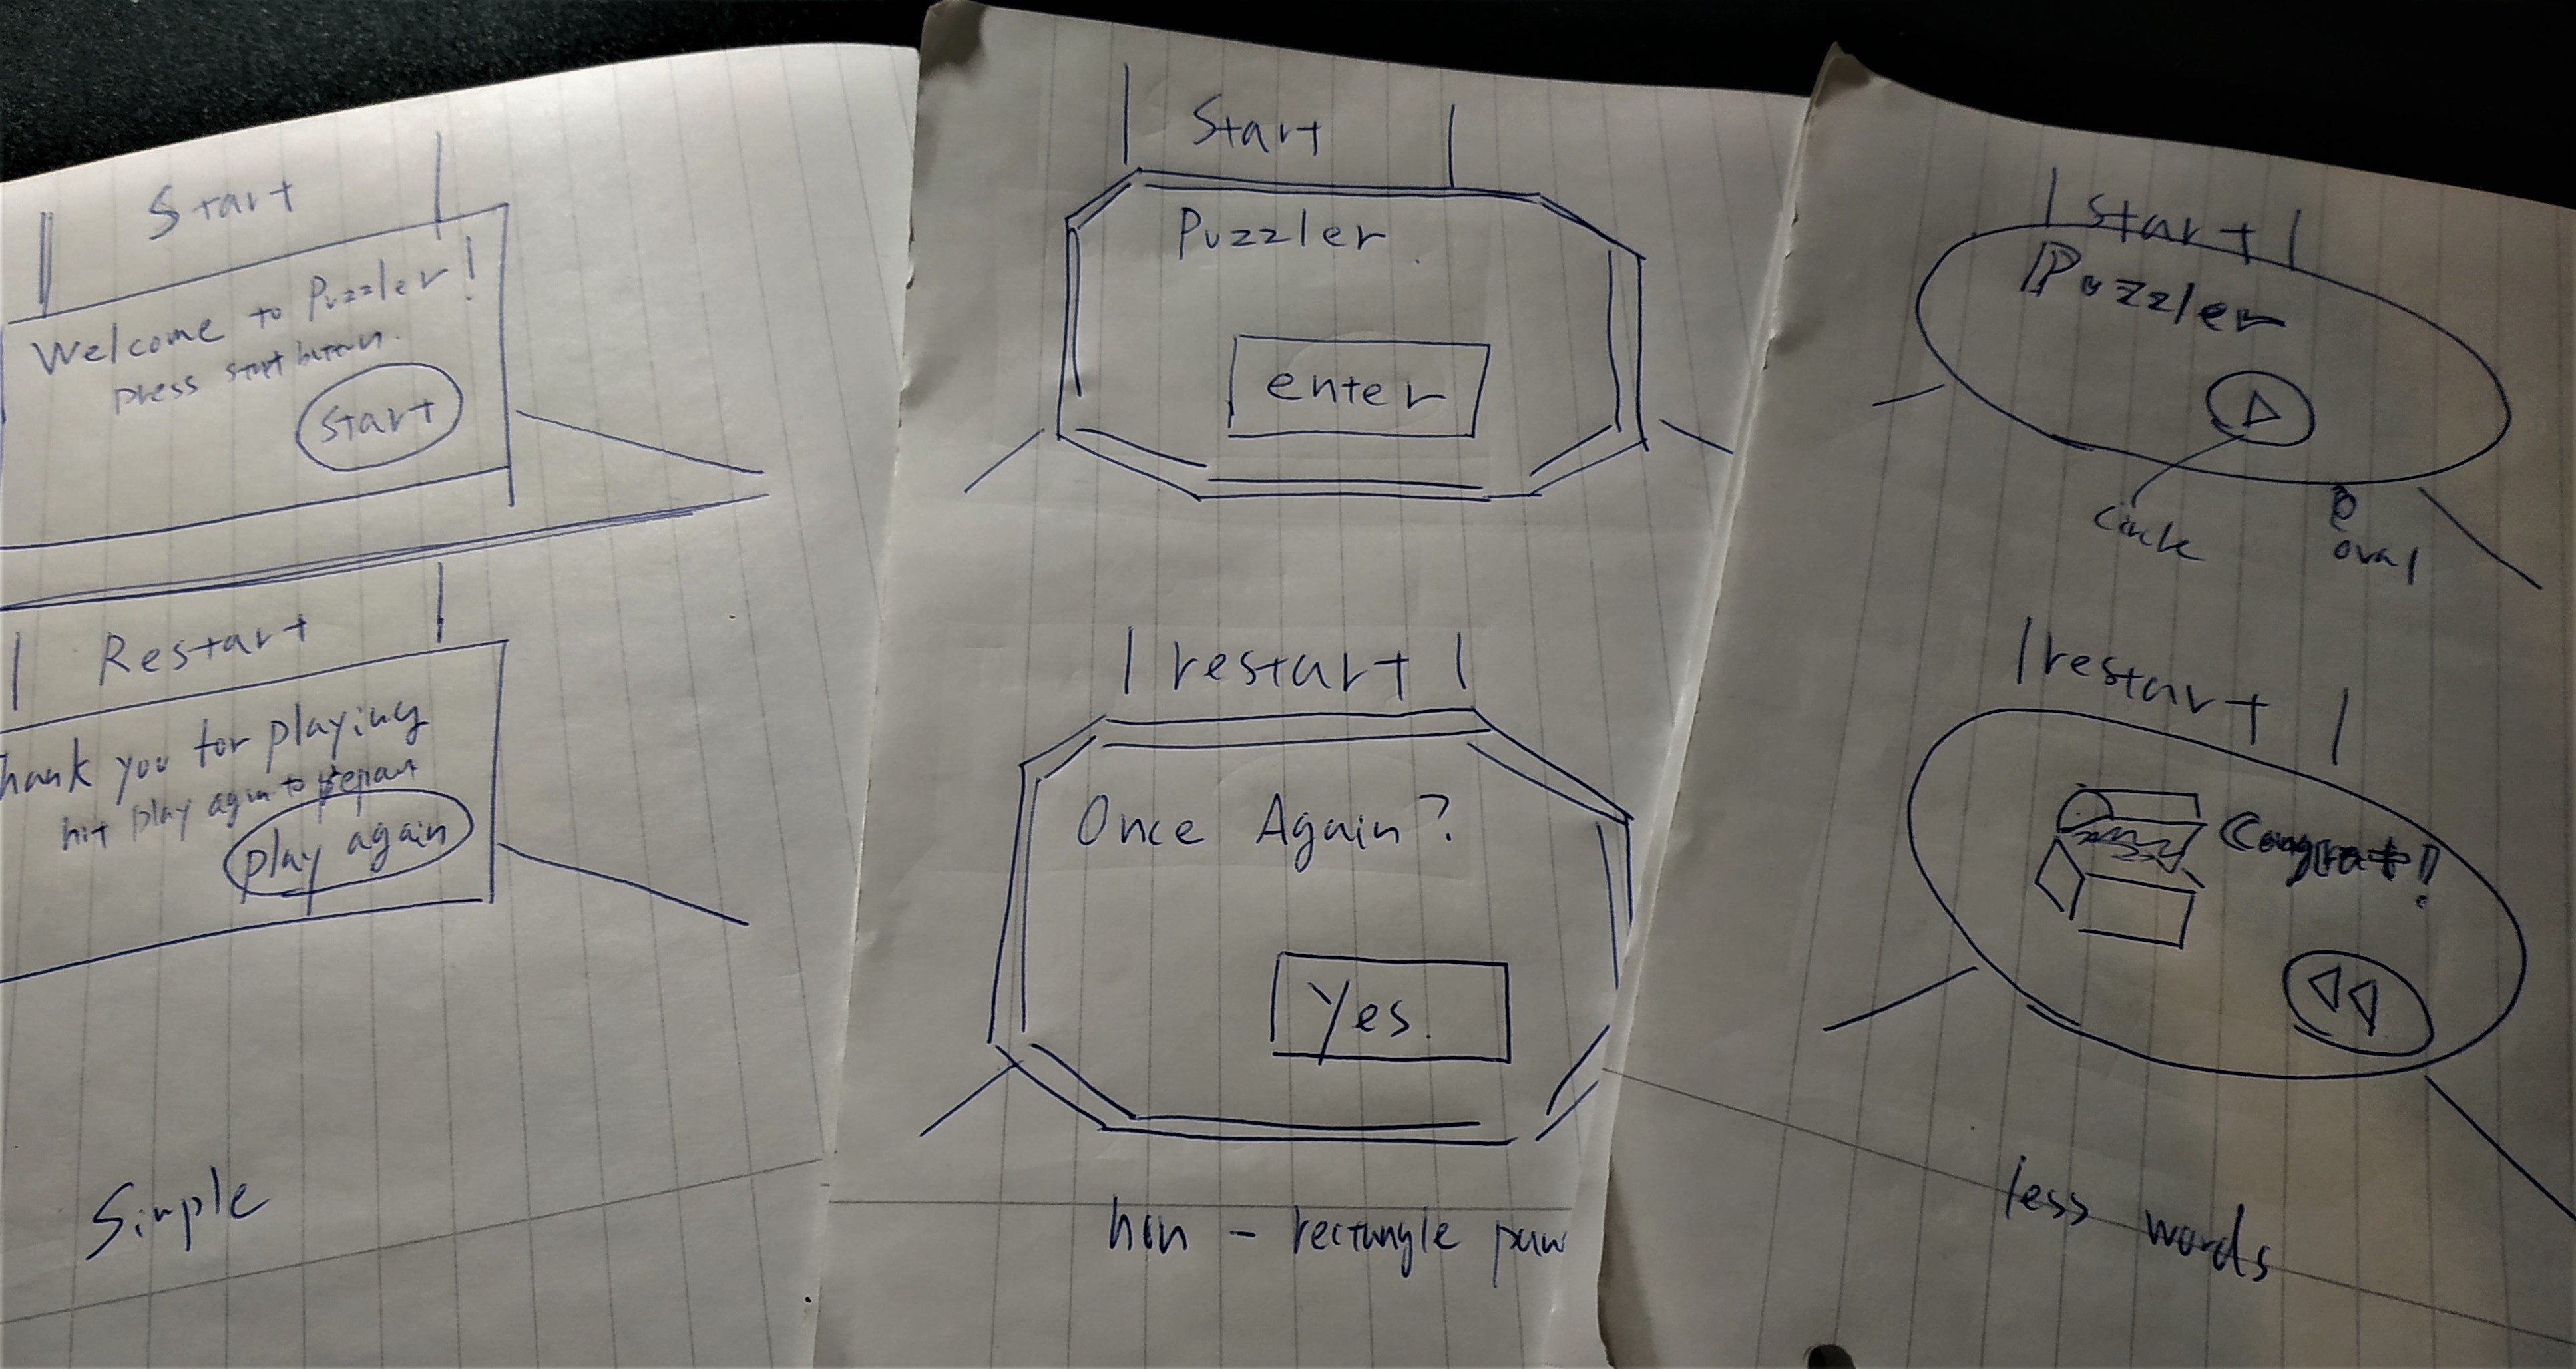 Start
Welcome to Puzzler!
press start button.
start
Restart
hank you for playing
hit play again to
play again
Simple
Start
Puzzler
enter
restart
Once Again?
Yes.
non - rectangle
start
Puzzler
oval
restart
Congrat!
less words